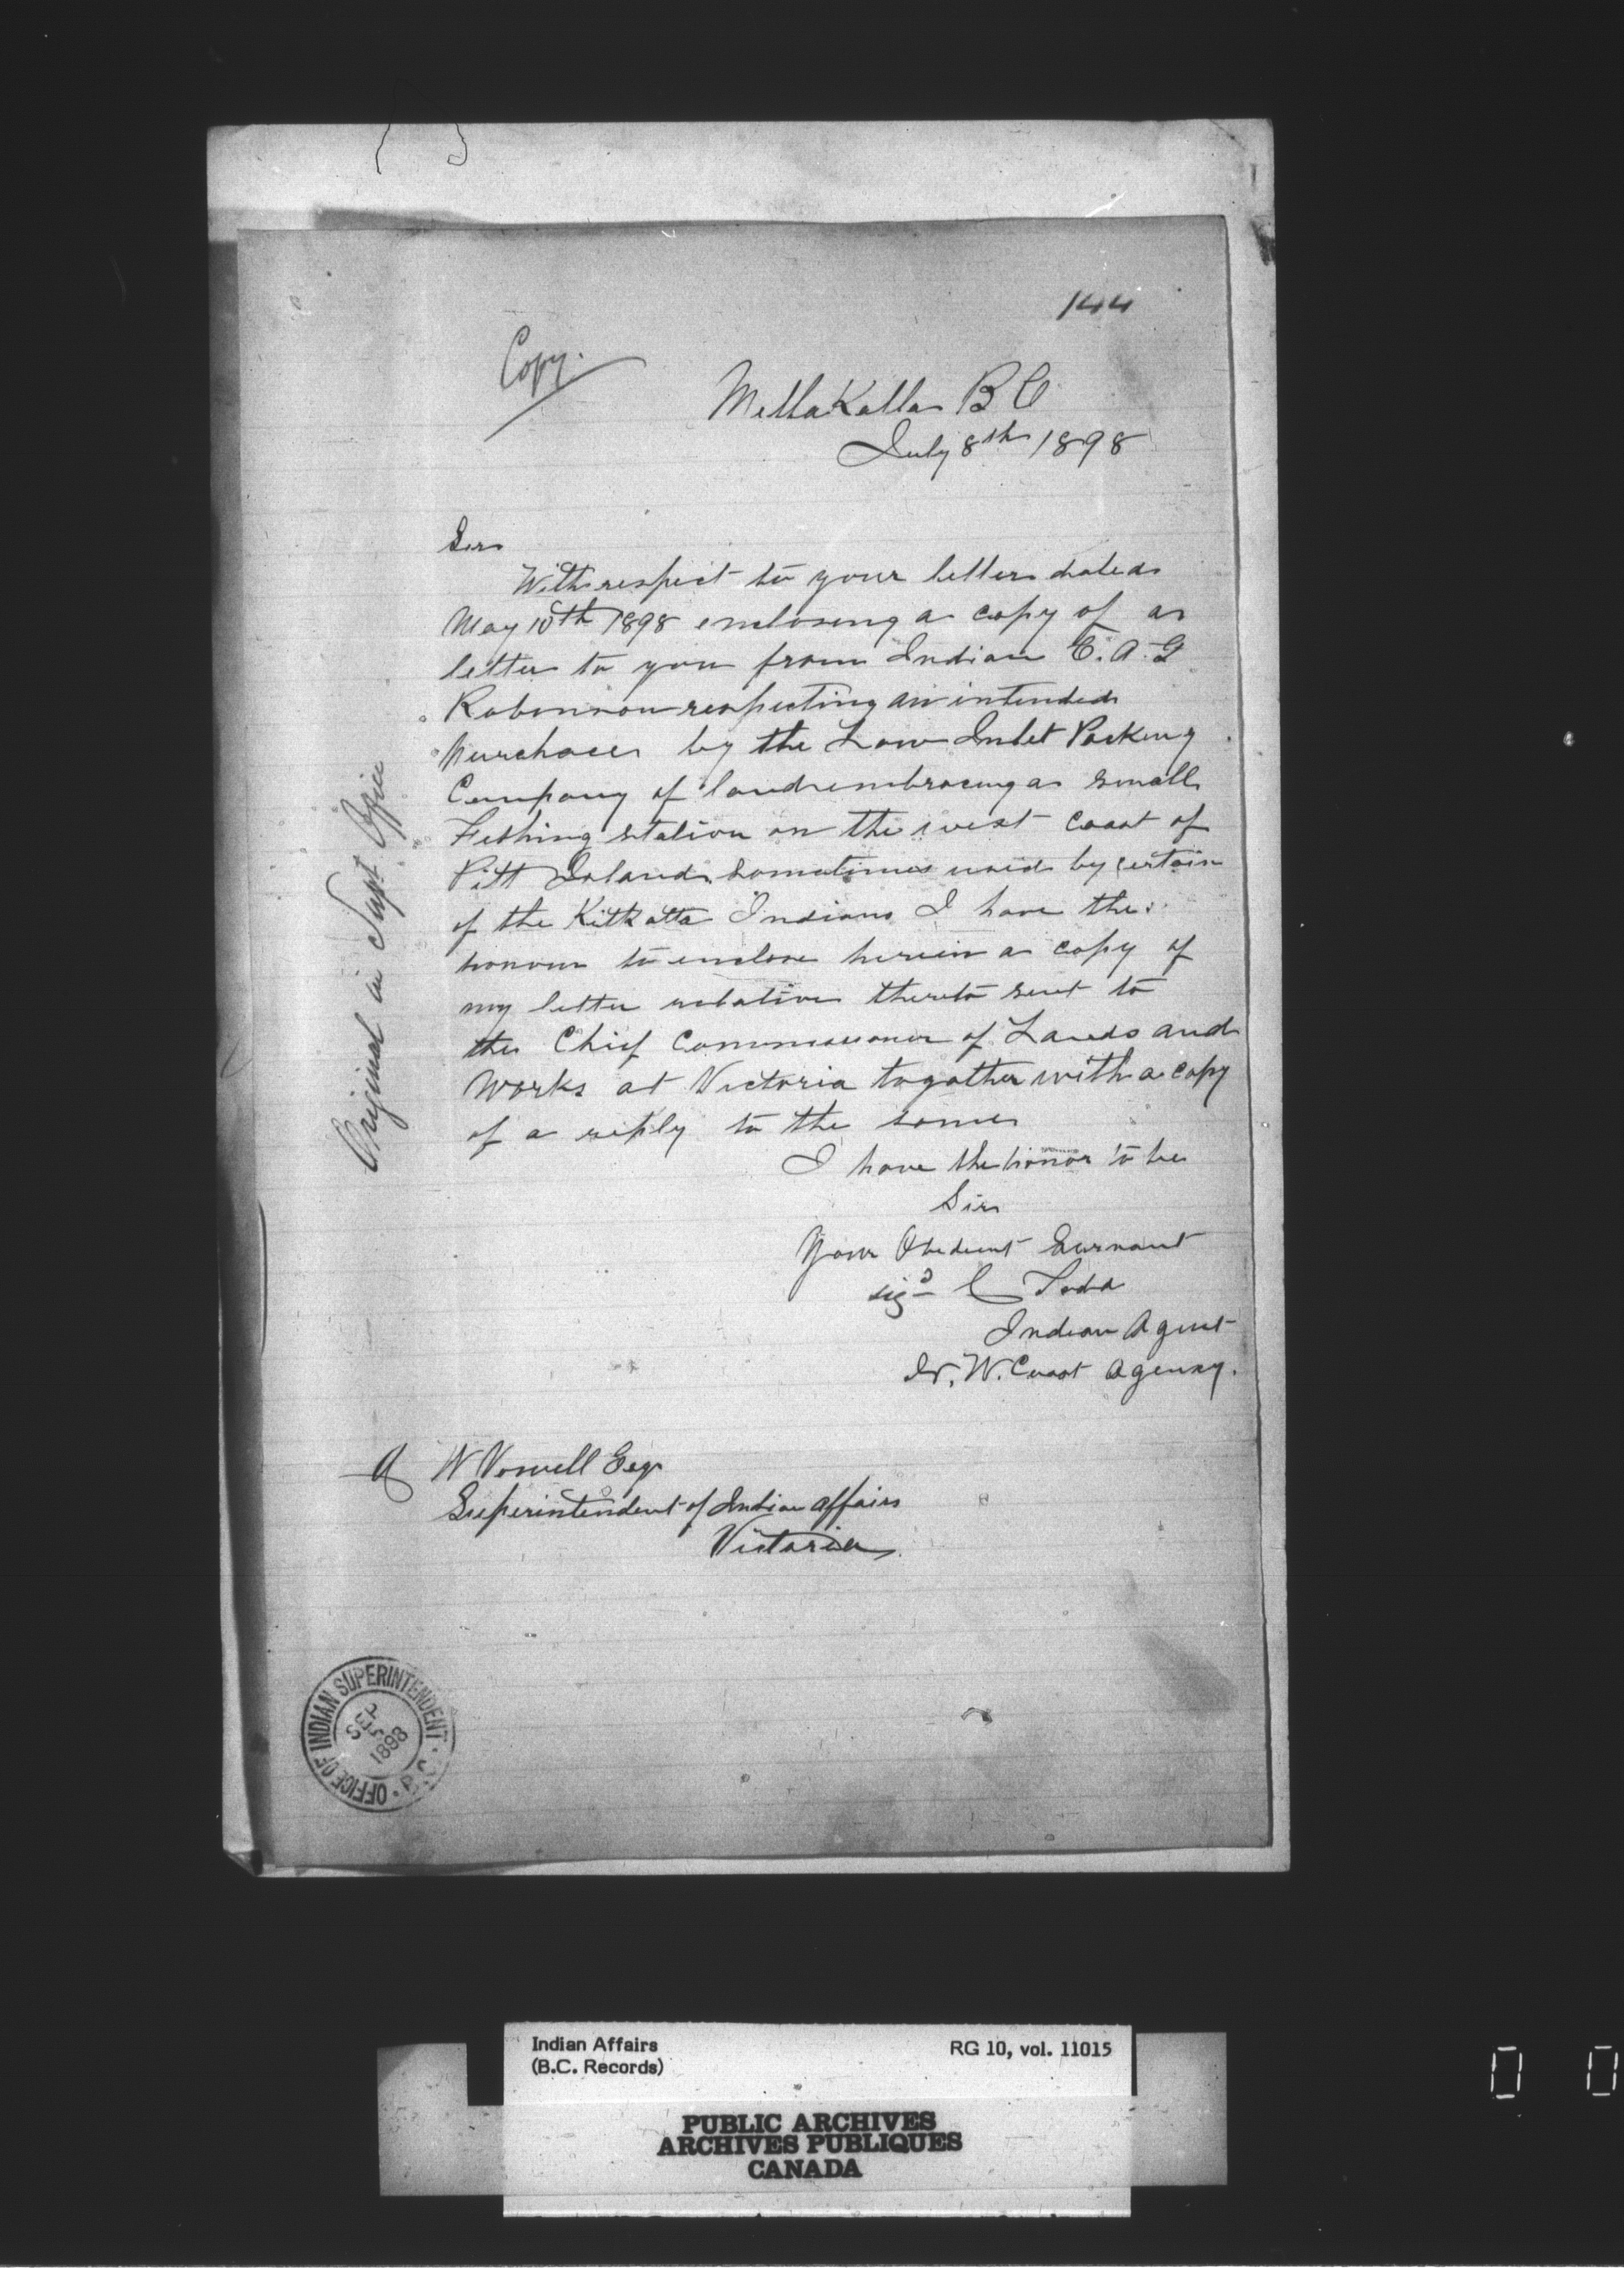 144
Copy.
Metlakatla B C
July 8th 1898
Sir
With respect to your letter dated
May 10th 1898 enclosing a copy of a
letter to you from Indian C. A. G
Robinson respecting an intended
purchase by the Low Inlet Packing
Company of land embracing a small
Fishing station on the west coast of
Pitt Island sometimes used by certain
of the Kitkatta Indians I have the
honour to enclose herein a copy of
my letter relative thereto sent to
the Chief Commissioner of Lands and
Works at Victoria togather with a copy
of a reply to the same
I have the honor to be
Sir
Your Obedient Servant
sigd C Todd
Indian Agent
N. W. Coast Agency.
A W Vowell Esqr
Superintendent of Indian Affairs
Victoria
Original in Supt Office
OFFICE OF INDIAN SUPERINTENDENT · B.C. ·
SEP
5
1898
Indian Affairs
(B.C. Records)
RG 10, vol. 11015
PUBLIC ARCHIVES
ARCHIVES PUBLIQUES
CANADA
0 0